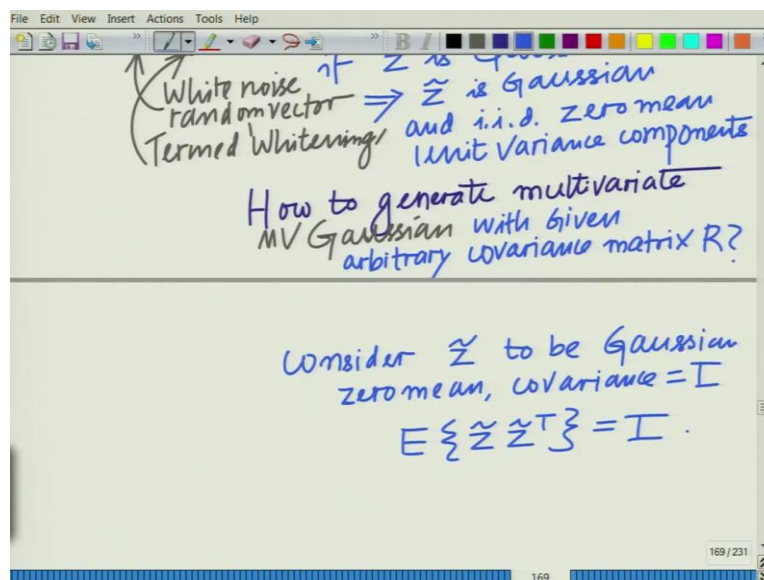 File Edit View Insert Actions Tools Help
if Z is
White noise
random vector ⇒ z̃ is Gaussian
Termed Whitening
and i.i.d. zero mean
Unit Variance components
How to generate multivariate
MV Gaussian with Given
arbitrary covariance matrix R?
Consider z̃ to be Gaussian
zero mean, covariance = I
E{z̃ z̃ᵀ} = I.
169 / 231
169